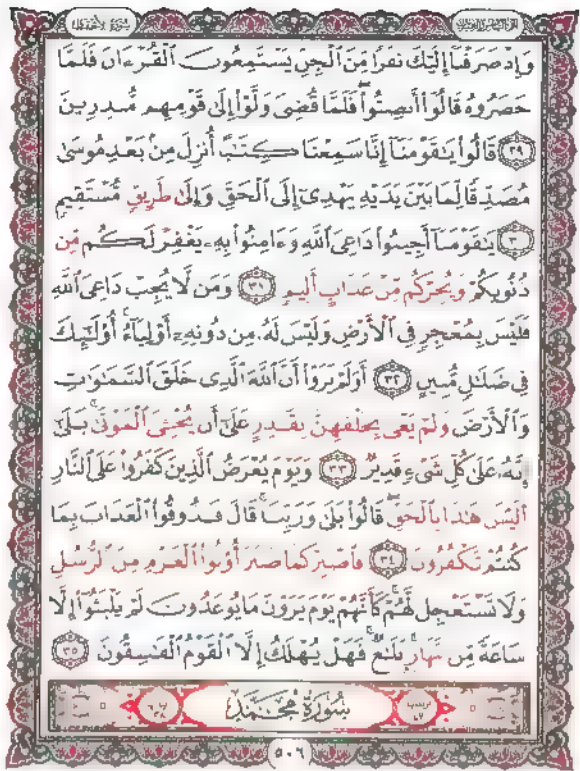 سورة الأحقاف
الجزء السادس والعشرون
وَإِذْ صَرَفْنَآ إِلَيْكَ نَفَرًا مِّنَ ٱلْجِنِّ يَسْتَمِعُونَ ٱلْقُرْءَانَ فَلَمَّا
حَضَرُوهُ قَالُوٓا۟ أَنصِتُوا۟ ۖ فَلَمَّا قُضِىَ وَلَّوْا۟ إِلَىٰ قَوْمِهِم مُّنذِرِينَ
٢٩ قَالُوا۟ يَٰقَوْمَنَآ إِنَّا سَمِعْنَا كِتَٰبًا أُنزِلَ مِنۢ بَعْدِ مُوسَىٰ
مُصَدِّقًا لِّمَا بَيْنَ يَدَيْهِ يَهْدِىٓ إِلَى ٱلْحَقِّ وَإِلَىٰ طَرِيقٍ مُّسْتَقِيمٍ
٣٠ يَٰقَوْمَنَآ أَجِيبُوا۟ دَاعِىَ ٱللَّهِ وَءَامِنُوا۟ بِهِۦ يَغْفِرْ لَكُم مِّن
ذُنُوبِكُمْ وَيُجِرْكُم مِّنْ عَذَابٍ أَلِيمٍ ٣١ وَمَن لَّا يُجِبْ دَاعِىَ ٱللَّهِ
فَلَيْسَ بِمُعْجِزٍ فِى ٱلْأَرْضِ وَلَيْسَ لَهُۥ مِن دُونِهِۦٓ أَوْلِيَآءُ ۚ أُو۟لَٰٓئِكَ
فِى ضَلَٰلٍ مُّبِينٍ ٣٢ أَوَلَمْ يَرَوْا۟ أَنَّ ٱللَّهَ ٱلَّذِى خَلَقَ ٱلسَّمَٰوَٰتِ
وَٱلْأَرْضَ وَلَمْ يَعْىَ بِخَلْقِهِنَّ بِقَٰدِرٍ عَلَىٰٓ أَن يُحْۦِىَ ٱلْمَوْتَىٰ ۚ بَلَىٰٓ
إِنَّهُۥ عَلَىٰ كُلِّ شَىْءٍ قَدِيرٌ ٣٣ وَيَوْمَ يُعْرَضُ ٱلَّذِينَ كَفَرُوا۟ عَلَى ٱلنَّارِ
أَلَيْسَ هَٰذَا بِٱلْحَقِّ ۖ قَالُوا۟ بَلَىٰ وَرَبِّنَا ۚ قَالَ فَذُوقُوا۟ ٱلْعَذَابَ بِمَا
كُنتُمْ تَكْفُرُونَ ٣٤ فَٱصْبِرْ كَمَا صَبَرَ أُو۟لُوا۟ ٱلْعَزْمِ مِنَ ٱلرُّسُلِ
وَلَا تَسْتَعْجِل لَّهُمْ ۚ كَأَنَّهُمْ يَوْمَ يَرَوْنَ مَا يُوعَدُونَ لَمْ يَلْبَثُوٓا۟ إِلَّا
سَاعَةً مِّن نَّهَارٍۭ ۚ بَلَٰغٌ ۚ فَهَلْ يُهْلَكُ إِلَّا ٱلْقَوْمُ ٱلْفَٰسِقُونَ ٣٥
سُورَةُ مُحَمَّدٍ
٥٠٦